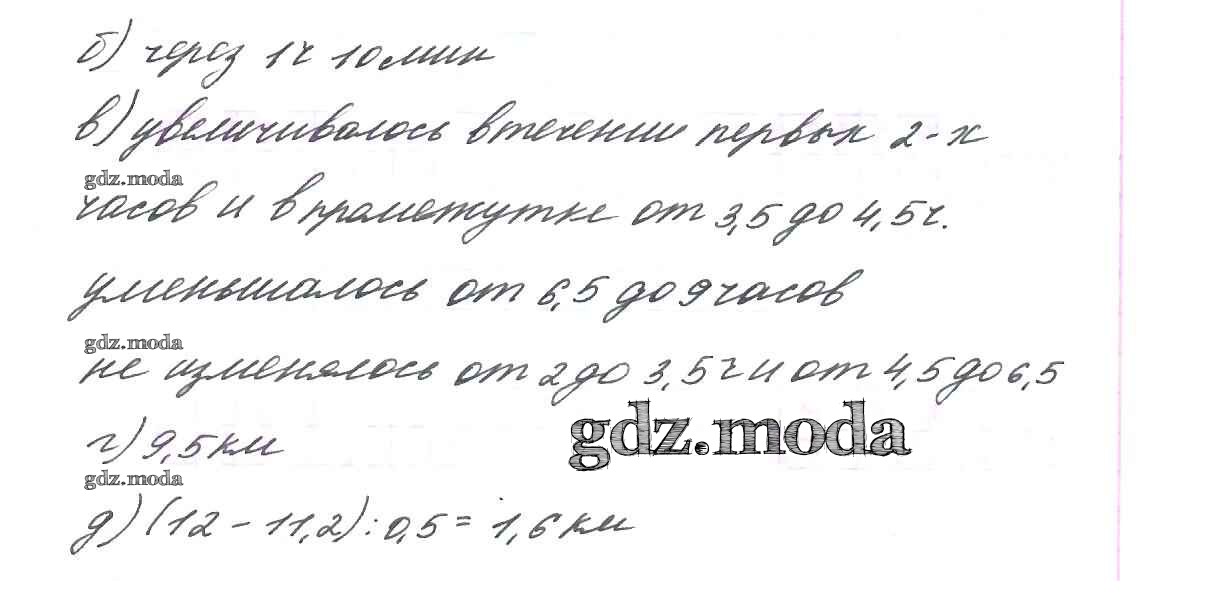 б) через 1ч 10мин
в) увеличивалось в течении первых 2-х
gdz.moda
часов и в промежутке от 3,5 до 4,5ч.
уменьшалось от 6,5 до 9 часов
gdz.moda
не изменялось от 2 до 3,5ч и от 4,5 до 6,5
г) 9,5км
gdz.moda
gdz.moda
д) (12 - 11,2) : 0,5 = 1,6 км